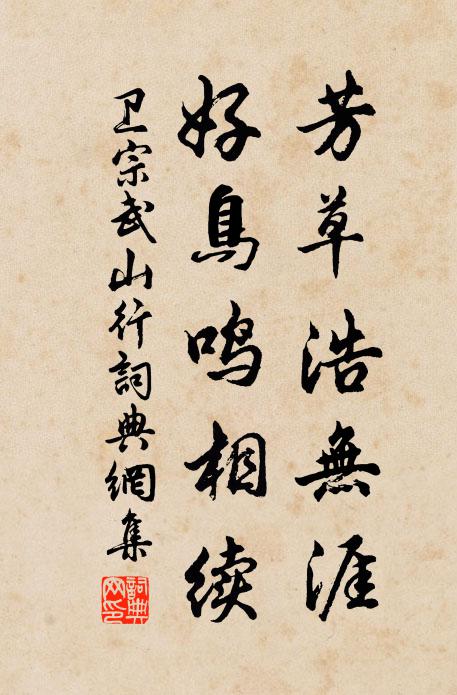 芳草浩無涯
好鳥鸣相续
卫宗武山行詞典網集
詞典